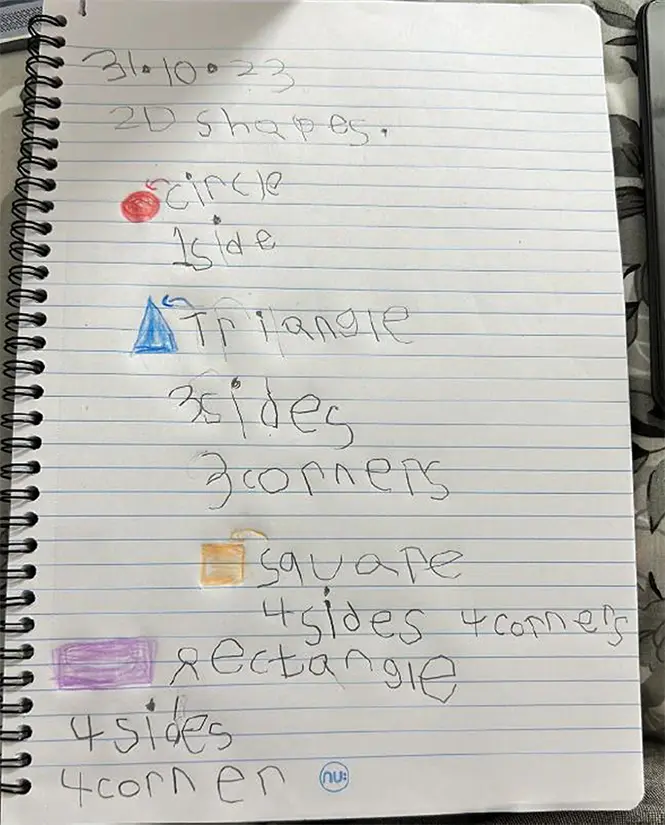 31.10.23
2D shapes.
circle
1side
Triangle
3sides
3corners
square
4sides 4corners
Rectangle
4sides
4corner
nu: